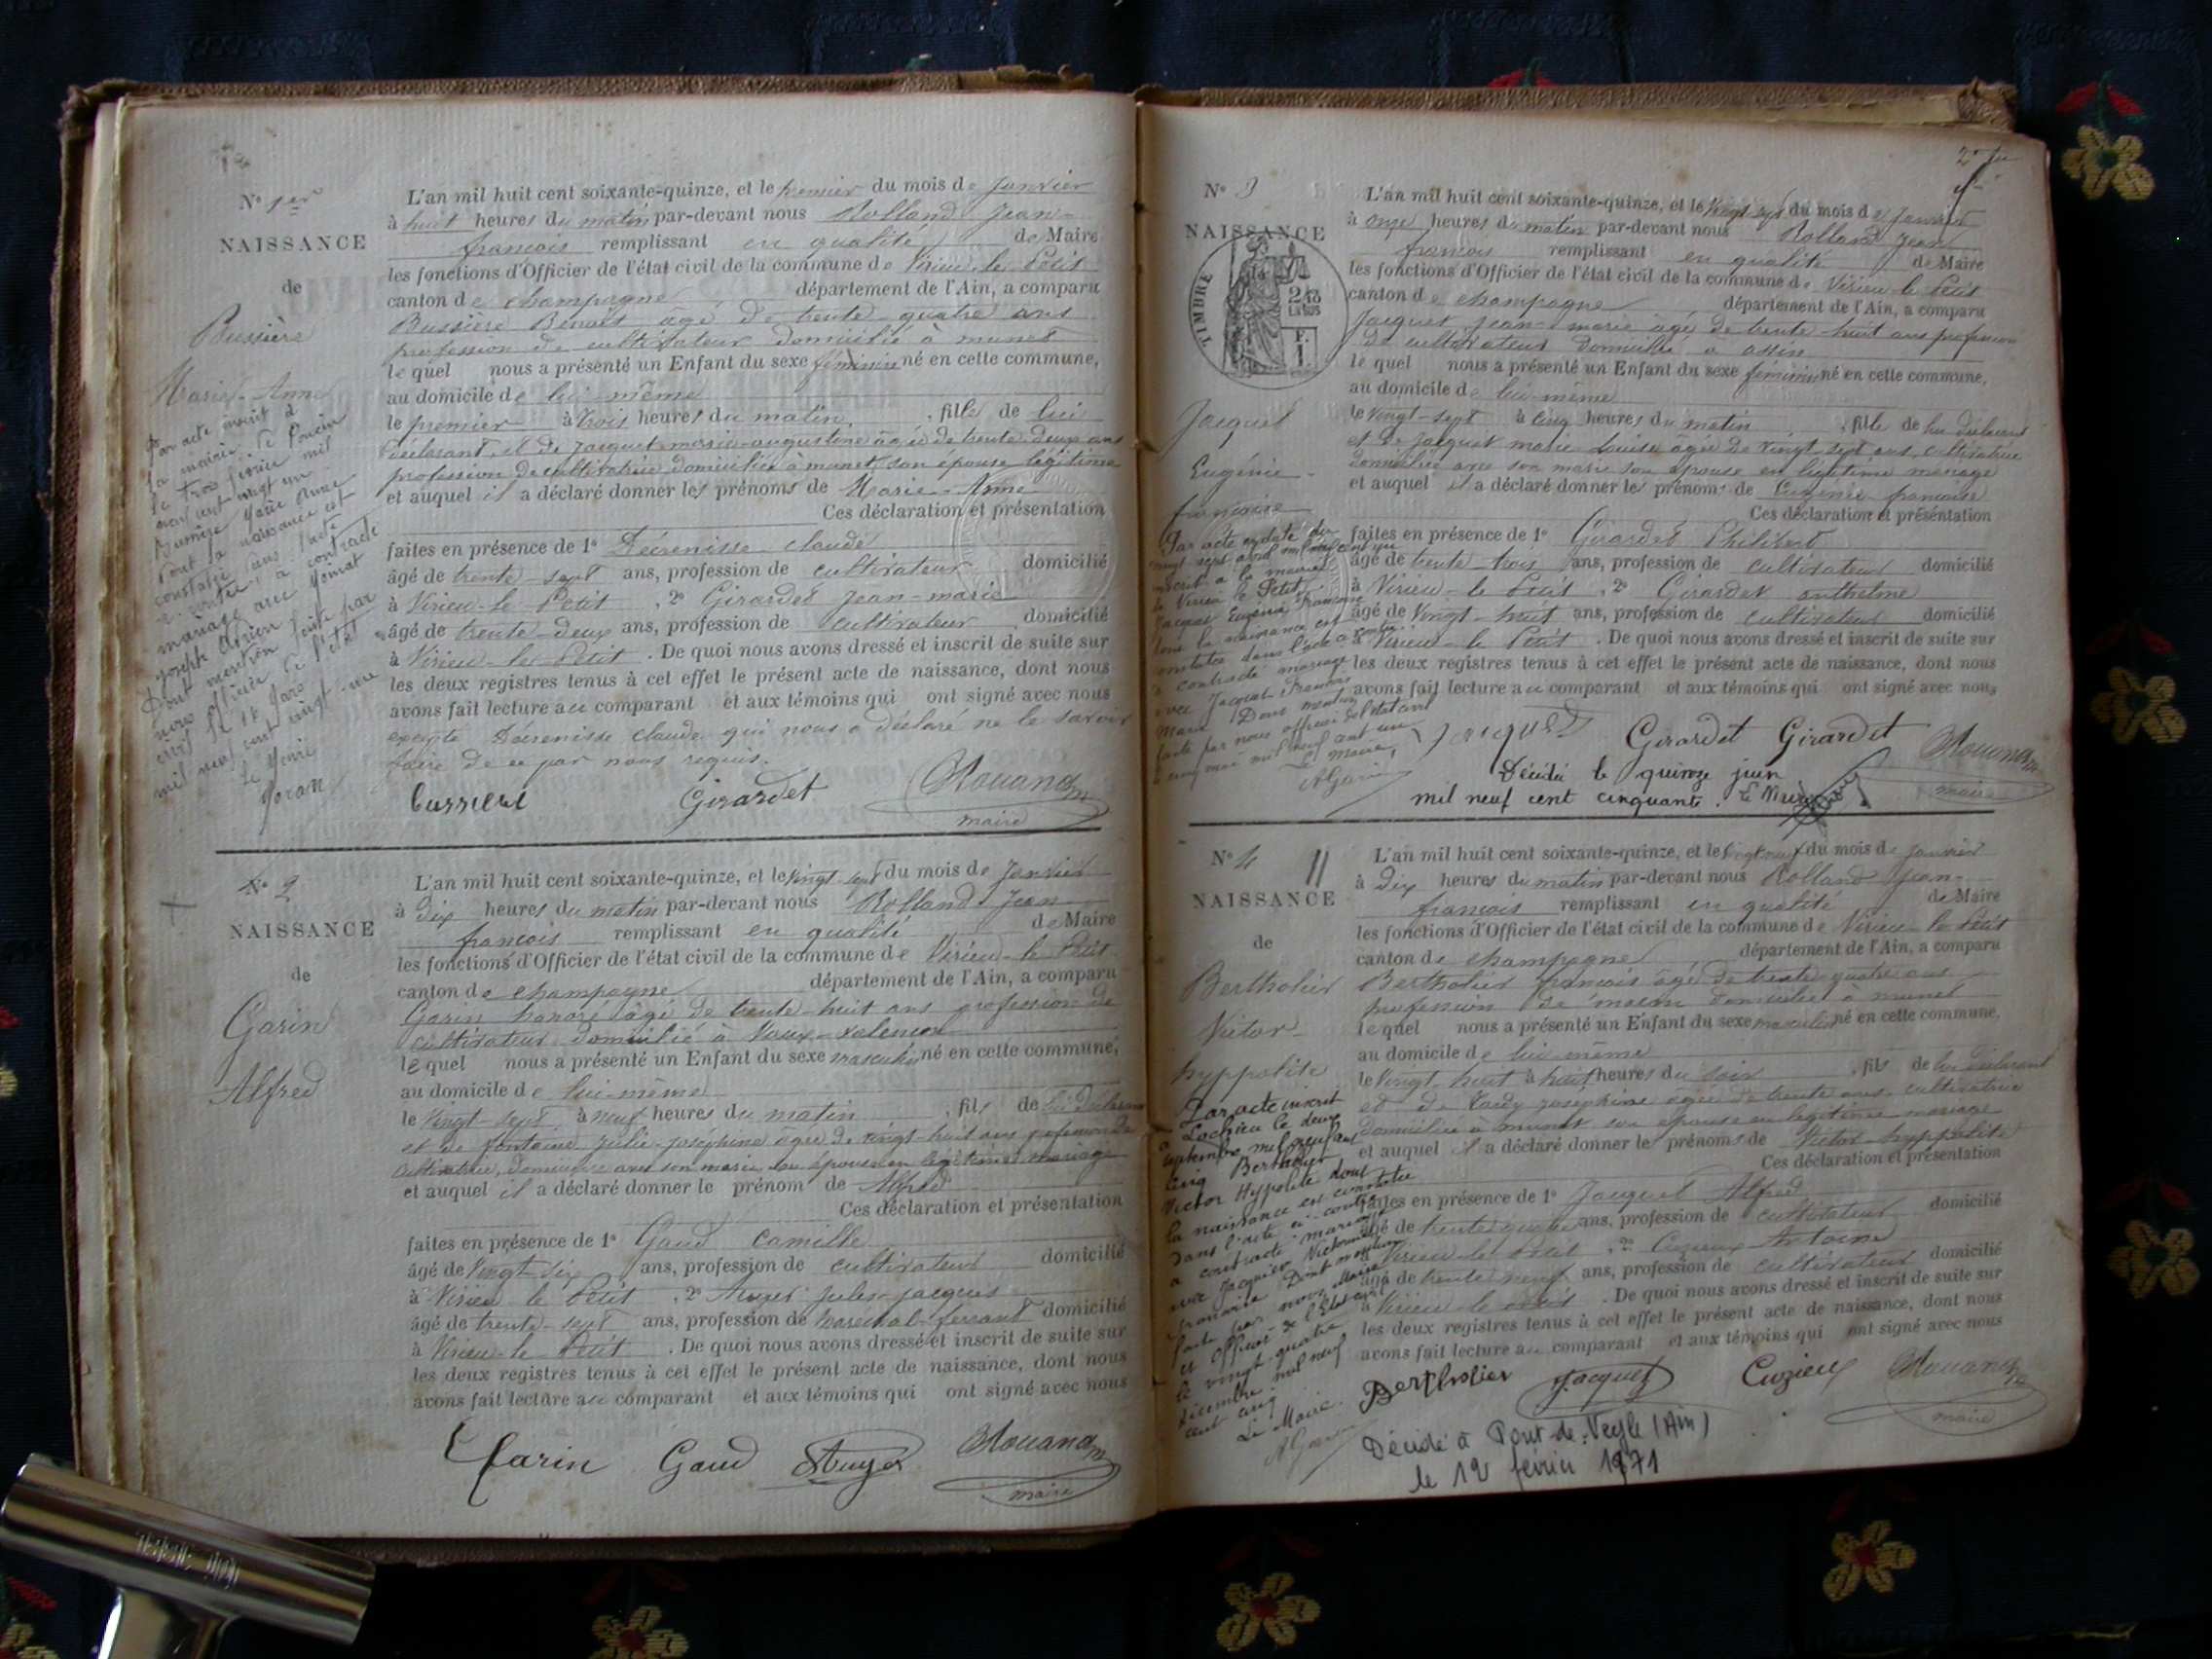 N° 1er
NAISSANCE
de
Bussière
Marie-Anne
L'an mil huit cent soixante-quinze, et le premier du mois de Janvier
à huit heures du matin par-devant nous Rolland Jean-
françois remplissant en qualité de Maire
les fonctions d'Officier de l'état civil de la commune de Virieu-le-Petit
canton de champagne département de l'Ain, a comparu
Bussière Benoit âgé de trente-quatre ans
profession de cultivateur domicilié à munet
lequel nous a présenté un Enfant du sexe féminin né en cette commune,
au domicile de lui-même
le premier à trois heures du matin, fille de lui
déclarant, et de Jacquet marie-augustine âgée de trente deux ans
profession de cultivatrice domiciliée à munet, son épouse légitime
et auquel il a déclaré donner les prénoms de Marie-Anne
Ces déclaration et présentation
faites en présence de 1° Décrenisse claude
âgé de trente-sept ans, profession de cultivateur domicilié
à Virieu-le-Petit, 2° Girardet Jean-marie
âgé de trente-deux ans, profession de cultivateur domicilié
à Virieu-le-Petit. De quoi nous avons dressé et inscrit de suite sur
les deux registres tenus à cet effet le présent acte de naissance, dont nous
avons fait lecture au comparant et aux témoins qui ont signé avec nous
excepté Décrenisse claude qui nous a déclaré ne le savoir
faire de ce par nous requis.
Girardet
maire
Par acte inscrit à
la mairie de
le trois février mil
neuf cent vingt un
Bussière Marie Anne
dont la naissance est
constatée dans l'acte
ci-contre, a contracté
mariage avec
Joseph Adrien
Dont mention faite par
nous officier de l'état
civil le Mars
mil neuf cent vingt-un
N° 2
NAISSANCE
de
Garin
Alfred
L'an mil huit cent soixante-quinze, et le vingt-sept du mois de Janvier
à dix heures du matin par-devant nous Rolland Jean
françois remplissant en qualité de Maire
les fonctions d'Officier de l'état civil de la commune de Virieu-le-Petit
canton de champagne département de l'Ain, a comparu
Garin honoré âgé de trente-huit ans profession de
cultivateur domicilié à Vaux-
lequel nous a présenté un Enfant du sexe masculin né en cette commune,
au domicile de lui-même
le vingt-sept à neuf heures du matin, fils de lui déclarant
et de fontaine Julie-Joséphine âgée de vingt-huit ans profession de
cultivatrice, demeurant avec son mari son épouse en légitime mariage
et auquel il a déclaré donner le prénom de Alfred
Ces déclaration et présentation
faites en présence de 1° Gaud Camille
âgé de vingt-six ans, profession de cultivateur domicilié
à Virieu le Petit, 2° Jules-Jacques
âgé de trente-sept ans, profession de maréchal-ferrant domicilié
à Virieu-le-Petit. De quoi nous avons dressé et inscrit de suite sur
les deux registres tenus à cet effet le présent acte de naissance, dont nous
avons fait lecture au comparant et aux témoins qui ont signé avec nous
Garin Gaud
maire
2
N° 3
NAISSANCE
TIMBRE
Jacquet
Eugénie-
françoise
L'an mil huit cent soixante-quinze, et le vingt-sept du mois de Janvier
à onze heures du matin par-devant nous Rolland Jean
françois remplissant en qualité de Maire
les fonctions d'Officier de l'état civil de la commune de Virieu-le-Petit
canton de champagne département de l'Ain, a comparu
Jacquet Jean-marie âgé de trente-huit ans profession
de cultivateur domicilié à assin
lequel nous a présenté un Enfant du sexe féminin né en cette commune,
au domicile de lui-même
le vingt-sept à cinq heures du matin, fille de lui déclarant
et de Jacquet marie Louise âgée de vingt-sept ans, cultivatrice
domiciliée avec son mari son épouse en légitime mariage
et auquel il a déclaré donner les prénoms de Eugénie-françoise
Ces déclaration et présentation
faites en présence de 1° Girardet Philibert
âgé de trente-trois ans, profession de cultivateur domicilié
à Virieu-le-Petit, 2° Girardet anthelme
âgé de vingt-huit ans, profession de cultivateur domicilié
à Virieu-le-Petit. De quoi nous avons dressé et inscrit de suite sur
les deux registres tenus à cet effet le présent acte de naissance, dont nous
avons fait lecture au comparant et aux témoins qui ont signé avec nous
Jacquet Girardet Girardet
maire
Décédée le quinze juin
mil neuf cent cinquante. Le Maire
Par acte en date du
vingt sept avril mil neuf cent un
inscrit à la mairie
de Virieu le Petit
Jacquet Eugénie Françoise
dont la naissance est
constatée dans l'acte ci-contre
a contracté mariage
avec Jacquet François
Marie Dont mention
faite par nous officier de l'état civil
mai mil neuf cent un
Le Maire,
N° 4
NAISSANCE
de
Bertholier
Victor-
hyppolite
L'an mil huit cent soixante-quinze, et le vingt-neuf du mois de Janvier
à dix heures du matin par-devant nous Rolland Jean-
françois remplissant en qualité de Maire
les fonctions d'Officier de l'état civil de la commune de Virieu-le-Petit
canton de champagne département de l'Ain, a comparu
Bertholier françois âgé de trente quatre ans
profession de maçon domicilié à munet
lequel nous a présenté un Enfant du sexe masculin né en cette commune,
au domicile de lui-même
le vingt-huit à huit heures du soir, fils de lui déclarant
et de Tardy Joséphine âgée de trente ans cultivatrice
domiciliée à munet son épouse en légitime mariage
et auquel il a déclaré donner le prénoms de Victor-hyppolite
Ces déclaration et présentation
faites en présence de 1° Jacquet Alfred
âgé de trente ans, profession de cultivateur domicilié
à Virieu-le-Petit, 2° Cuzieux Antoine
âgé de trente-neuf ans, profession de cultivateur domicilié
à Virieu-le-Petit. De quoi nous avons dressé et inscrit de suite sur
les deux registres tenus à cet effet le présent acte de naissance, dont nous
avons fait lecture au comparant et aux témoins qui ont signé avec nous
Bertholier Jacquet Cuzieux
maire
Décédé à Pont-de-Veyle (Ain)
le 12 février 1971
Par acte inscrit
à Lochieu le deux
septembre mil neuf cent
cinq Bertholier
Victor Hyppolite dont
la naissance est constatée
dans l'acte ci-contre
a contracté mariage
avec Jacquier Victorine
Dont mention
faite par nous Maire
et officier de l'Etat civil
le vingt-quatre
décembre mil neuf
cent cinq
Le Maire.